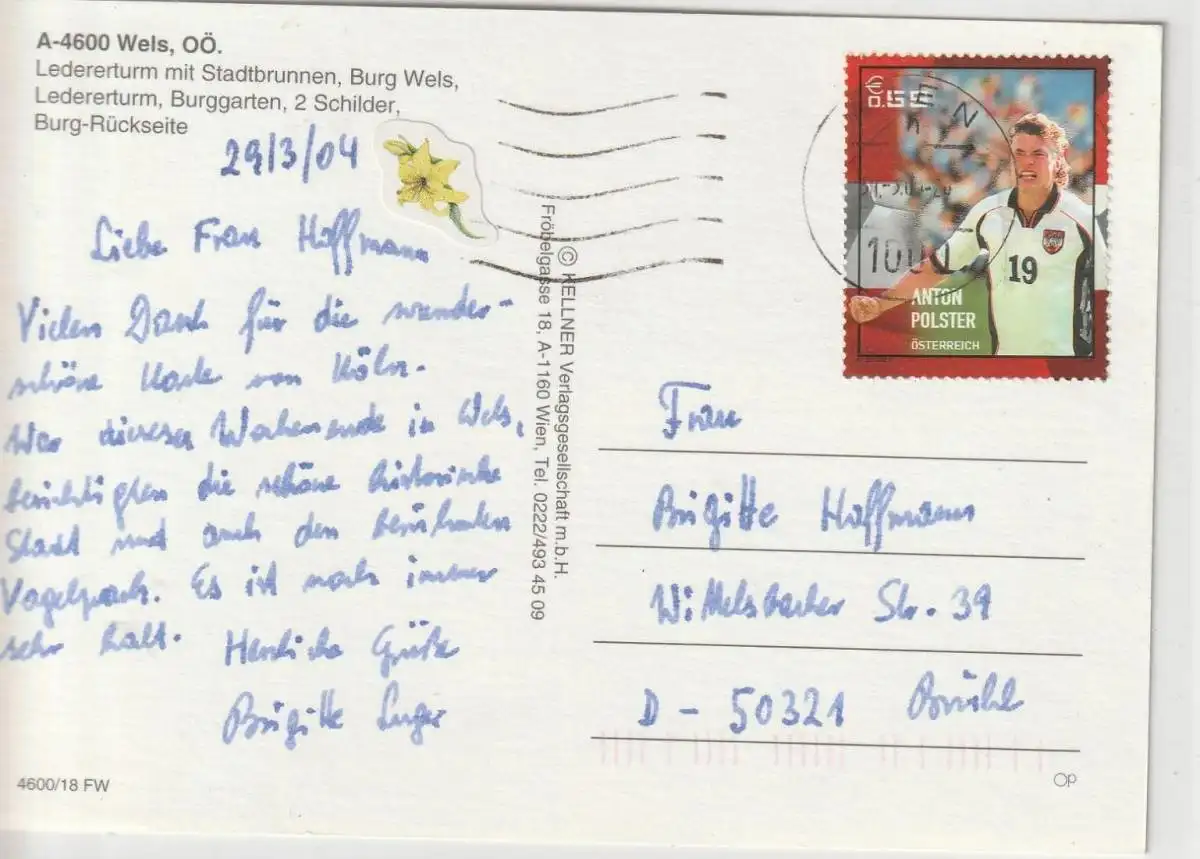 A-4600 Wels, OÖ.
Ledererturm mit Stadtbrunnen, Burg Wels,
Ledererturm, Burggarten, 2 Schilder,
Burg-Rückseite
29/3/04
Liebe Frau Hoffmann
Vielen Dank für die wunder-
schöne Karte von Köln.
War dieses Wochenende in Wels,
besichtigten die schöne historische
Stadt und auch den berühmten
Vogelpark. Es ist noch immer
sehr kalt.
Herzliche Grüße
Brigitte Luger
4600/18 FW
© KELLNER Verlagsgesellschaft m.b.H.
Fröbelgasse 18, A-1160 Wien, Tel. 0222/493 45 09
€ 0.55
WIEN
1000
19
ANTON
POLSTER
ÖSTERREICH
Frau
Brigitte Hoffmann
Wittelsbacher Str. 39
D - 50321 Brühl